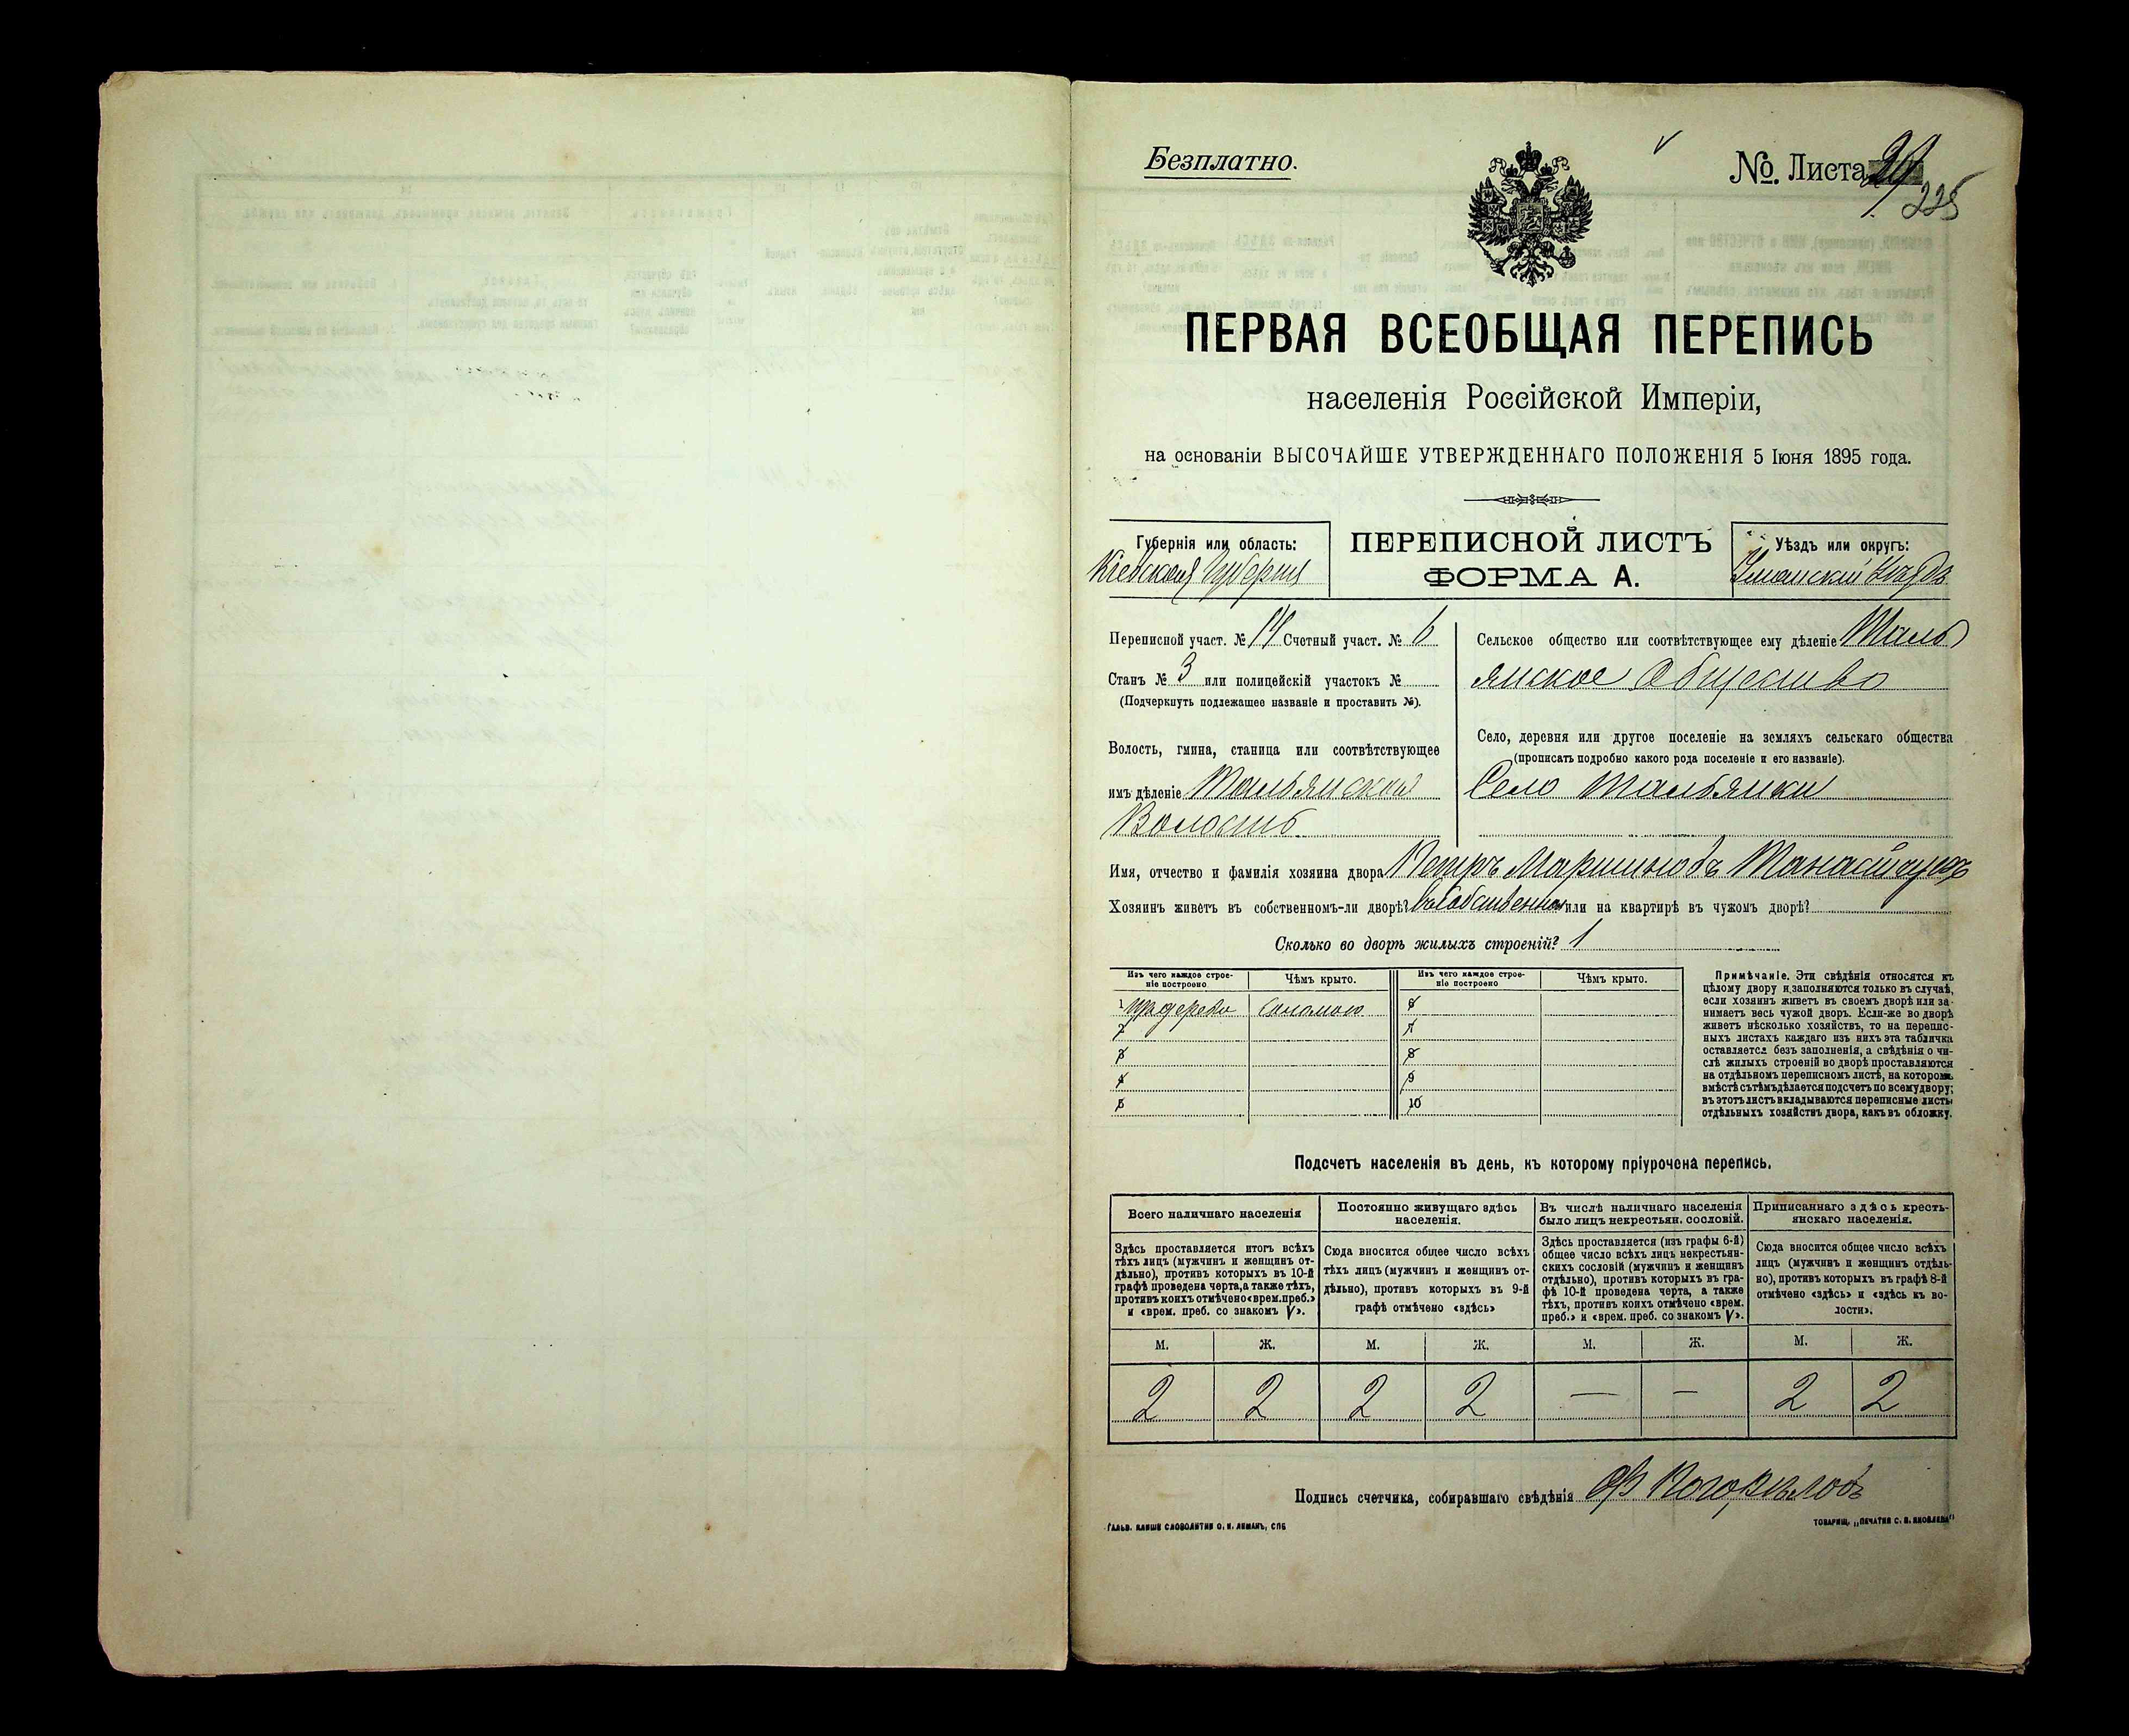 Безплатно.
№. Листа 29
225
ПЕРВАЯ ВСЕОБЩАЯ ПЕРЕПИСЬ
населенія Россійской Имперіи,
на основаніи ВЫСОЧАЙШЕ УТВЕРЖДЕННАГО ПОЛОЖЕНІЯ 5 Іюня 1895 года.
Губернія или область:
Кіевская Губернія
ПЕРЕПИСНОЙ ЛИСТЪ
ФОРМА А.
Уѣздъ или округъ:
Уманскій Уѣздъ
Переписной участ. № 14 Счетный участ. № 6
Станъ № 3 или полицейскій участокъ №
(Подчеркнуть подлежащее названіе и проставить №).
Волость, гмина, станица или соотвѣтствующее
имъ дѣленіе Тальянская
Волость
Сельское общество или соотвѣтствующее ему дѣленіе Таль
янское Общество
Село, деревня или другое поселеніе на земляхъ сельскаго общества
(прописать подробно какого рода поселеніе и его названіе).
Село Тальянки
Имя, отчество и фамилія хозяина двора Петръ Мартиновъ
Хозяинъ живетъ въ собственномъ-ли дворѣ? или на квартирѣ въ чужомъ дворѣ?
Сколько во дворѣ жилыхъ строеній? 1
Изъ чего каждое строе-
ніе построено
Чѣмъ крыто.
Изъ чего каждое строе-
ніе построено
Чѣмъ крыто.
1 Изъ дерева Соломою 6
2 7
3 8
4 9
5 10
Примѣчаніе. Эти свѣдѣнія относятся къ
цѣлому двору и заполняются только въ случаѣ,
если хозяинъ живетъ въ своемъ дворѣ или за-
нимаетъ весь чужой дворъ. Если-же во дворѣ
живетъ нѣсколько хозяйствъ, то на перепис-
ныхъ листахъ каждаго изъ нихъ эта табличка
оставляется безъ заполненія, а свѣдѣнія о чи-
слѣ жилыхъ строеній во дворѣ проставляются
на отдѣльномъ переписномъ листѣ, на которомъ
вмѣстѣ съ тѣмъ дѣлается подсчетъ по всему двору;
въ этотъ листъ вкладываются переписные листы
отдѣльныхъ хозяйствъ двора, какъ въ обложку.
Подсчетъ населенія въ день, къ которому пріурочена перепись.
Всего наличнаго населенія
Здѣсь проставляется итогъ всѣхъ
тѣхъ лицъ (мужчинъ и женщинъ от-
дѣльно), противъ которыхъ въ 10-й
графѣ проведена черта, а также тѣхъ,
противъ коихъ отмѣчено «врем. преб.»
и «врем. преб. со знакомъ V».
Постоянно живущаго здѣсь
населенія.
Сюда вносится общее число всѣхъ
тѣхъ лицъ (мужчинъ и женщинъ от-
дѣльно), противъ которыхъ въ 9-й
графѣ отмѣчено «здѣсь»
Въ числѣ наличнаго населенія
было лицъ некрестьян. сословій.
Здѣсь проставляется (изъ графы 6-й)
общее число всѣхъ лицъ некрестьян-
скихъ сословій (мужчинъ и женщинъ
отдѣльно), противъ которыхъ въ гра-
фѣ 10-й проведена черта, а также
тѣхъ, противъ коихъ отмѣчено «врем.
преб.» и «врем. преб. со знакомъ V».
Приписаннаго здѣсь кресть-
янскаго населенія.
Сюда вносится общее число всѣхъ
лицъ (мужчинъ и женщинъ отдѣль-
но), противъ которыхъ въ графѣ 8-й
отмѣчено «здѣсь» и «здѣсь къ во-
лости».
М. Ж. М. Ж. М. Ж. М. Ж.
2 2 2 2 — — 2 2
Подпись счетчика, собиравшаго свѣдѣнія
ГАЛЬВ. КЛИШЕ СЛОВОЛИТНИ О. И. ЛЕМАНЪ, СПБ
ТОВАРИЩ. „ПЕЧАТНЯ С. П. ЯКОВЛЕВА"